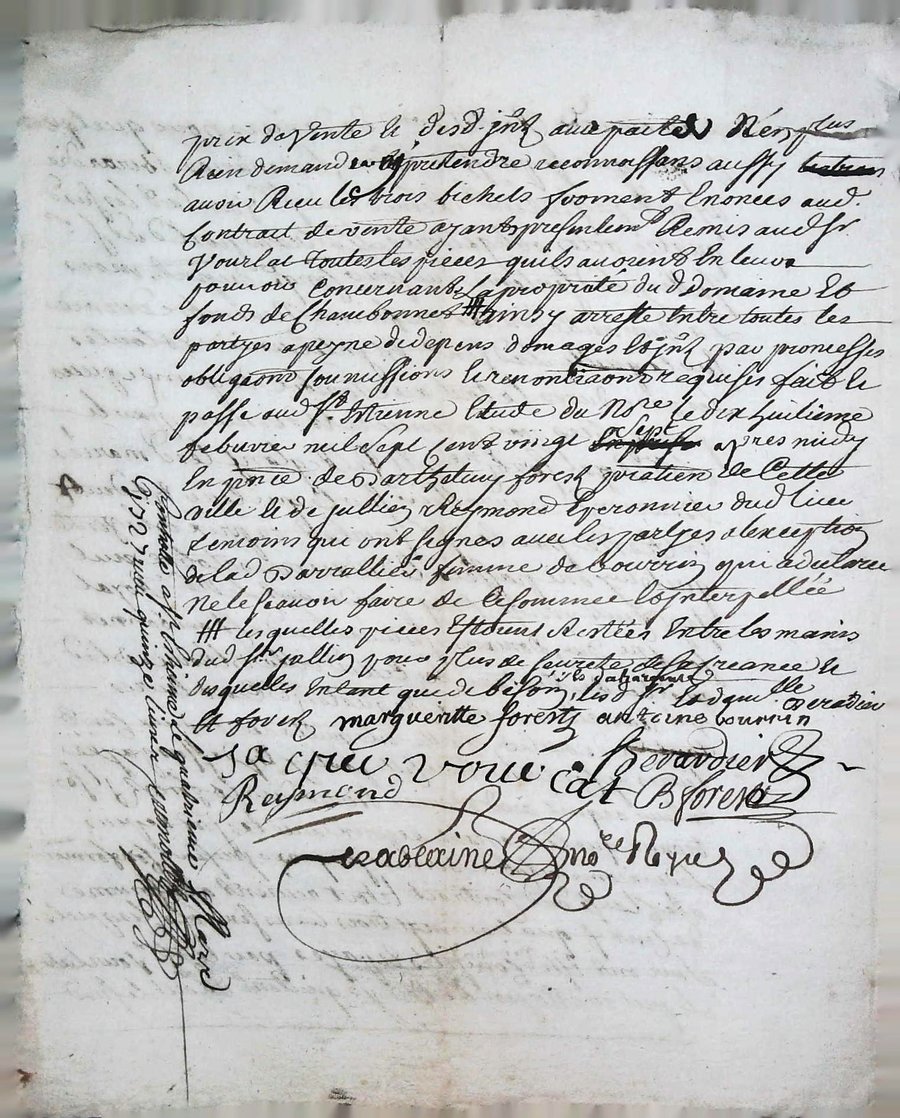 prix da vente et desd. jntz aux partes N'en plus
Rien demander ny pretendre reconnoissans aussy
avoir Receu les trois bichets froment Enoncés aud.
Contrat de vente ayant presentemt Remis aud Sr
Vourlat toutes les pieces qu'ils avoient En leur
pouvoir concernant La proprieté du d Domaine Et
fonds de Chambonnet # ainsy arresté Entre toutes les
partyes a peyne de depens domages Et jntz par promesses
obligaons soumissions et renontiaons requises fait et
passé aud St. Etienne Etude du Nore Le dix huitieme
febvrier mil sept cent vingt sept apres midy
En pnce de Barthelemy forest praticien de Cette
ville Et de Jullien Raymond Eperonnier dud lieu
temoins qui ont signés avec les partyes a l'exception
de lad femme de Bourrin qui a declaré
Ne le scavoir faire de Ce sommée Et interpellée
# lesquelles pieces Estoient Restées Entre les mains
dud Sr. Jullien pour plus de seureté de sa Creance Et
desquelles Entant que de besoin, ils
Et forest margueritte forest antoine bourrin
Berardier
Raymond Bforest
nore Royal
Controlé a St. Ethienne le quatrieme Mars
1727 quinze livres